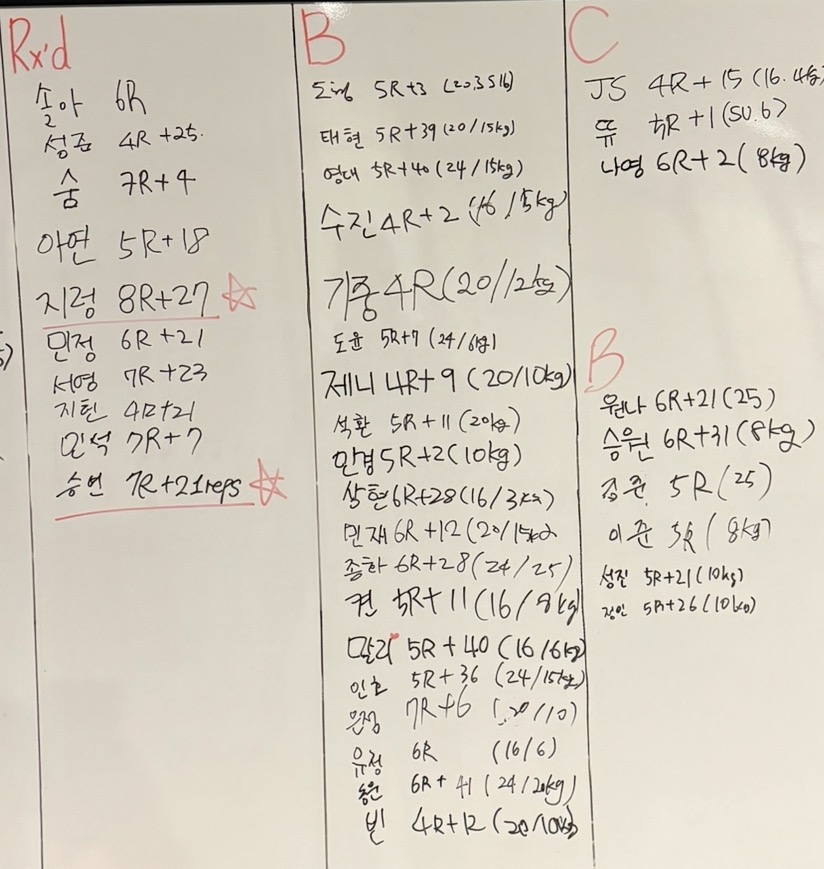 Rx'd
솔아 6R
성준 4R+25.
숨 7R+4
아연 5R+18
지령 8R+27
민정 6R+21
서영 7R+23
지현 4R+21
민석 7R+7
승연 7R+21reps
B
5R+3
태현 5R+39 (20/15kg)
영대 5R+40 (24/15kg)
수진 4R+2 (16/5kg)
기중 4R (20/12kg)
도윤 5R+7 (24/6kg)
제니 4R+9 (20/10kg)
석환 5R+11 (20kg)
민경 5R+2 (10kg)
상현 6R+28 (16/3kg)
민재 6R+12 (20/15kg)
종하 6R+28 (24/25)
켠 5R+11 (16/8kg)
말리 5R+40 (16/6kg)
인호 5R+36 (24/15kg)
7R+6 (20/10)
유정 6R (16/6)
6R+41 (24/20kg)
빈 4R+12 (20/10kg)
C
JS 4R+15 (16.4kg)
뜌 5R+1 (SU.6)
나영 6R+2 (8kg)
B
원나 6R+21 (25)
승원 6R+31 (8kg)
김준 5R (25)
이준 5R (8kg)
성진 5R+21 (10kg)
정인 5R+26 (10kg)